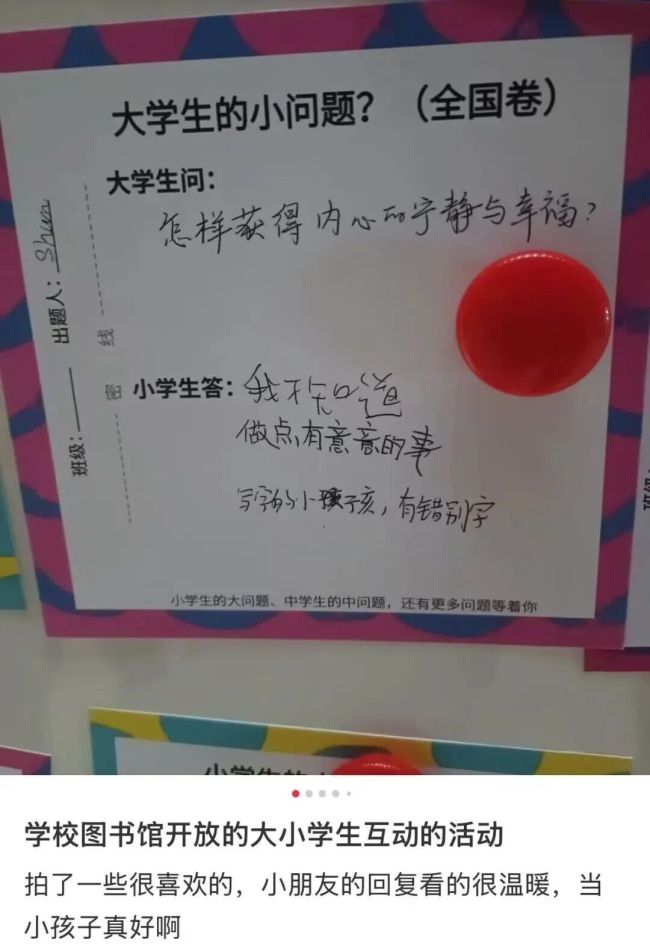 大学生的小问题？（全国卷）
大学生问：
怎样获得内心的宁静与幸福？
出题人：Shun
班级：
密 线
小学生答：我不知道
做点有意意的事
写字的小孩，有错别字
小学生的大问题、中学生的中问题，还有更多问题等着你
小学生的
学校图书馆开放的大小学生互动的活动
拍了一些很喜欢的，小朋友的回复看的很温暖，当
小孩子真好啊